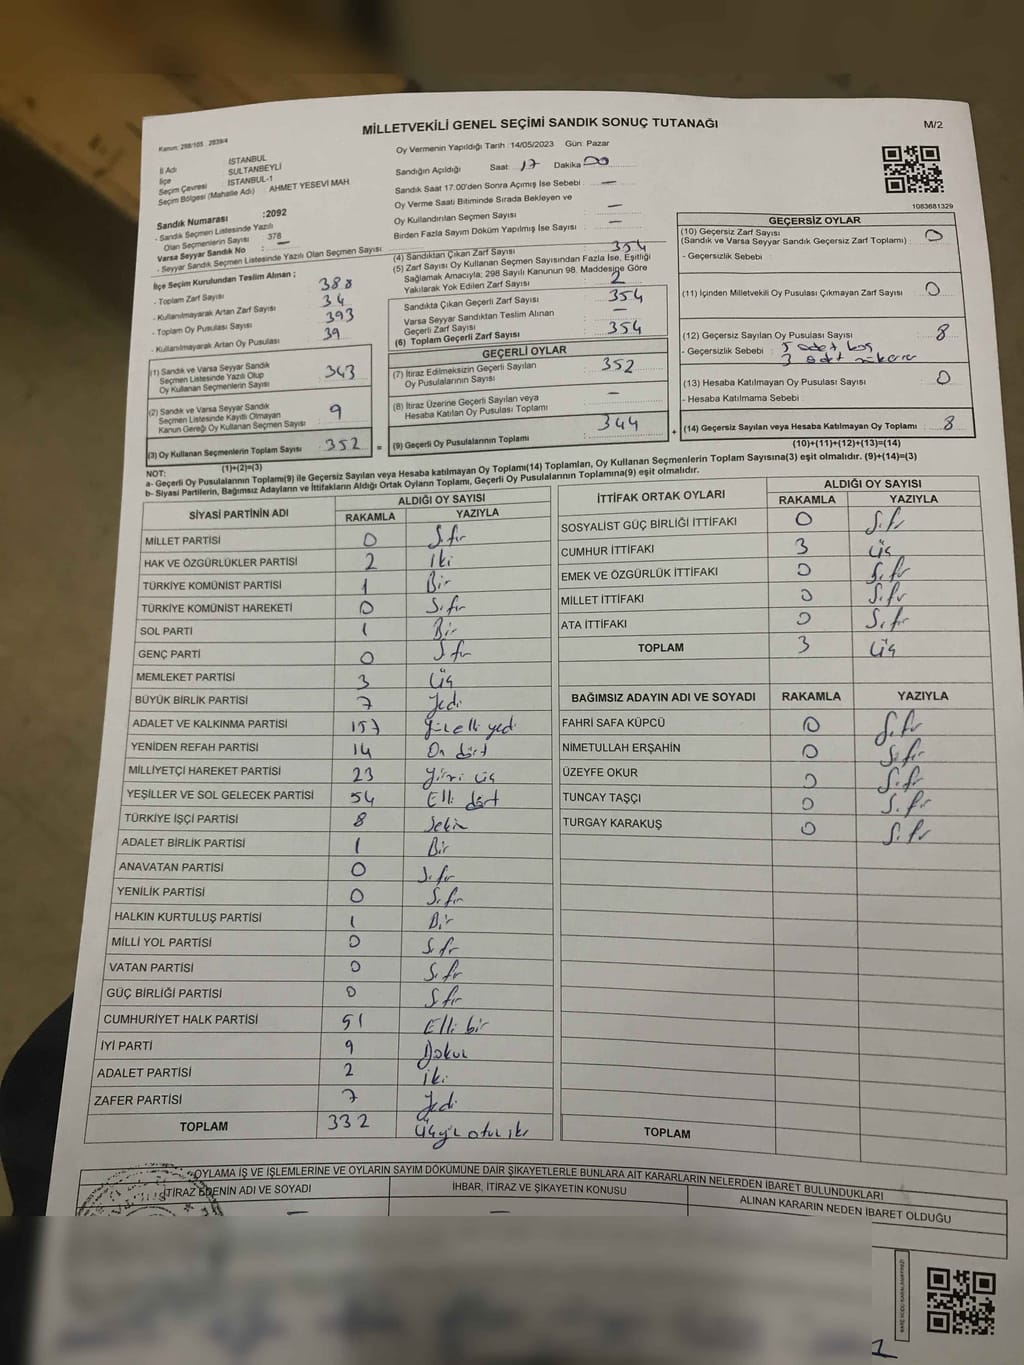 MİLLETVEKİLİ GENEL SEÇİMİ SANDIK SONUÇ TUTANAĞI
M/2
Kanun: 298/105 , 2839/4
İl Adı İSTANBUL
İlçe SULTANBEYLİ
Seçim Çevresi İSTANBUL-1
Seçim Bölgesi (Mahalle Adı) AHMET YESEVİ MAH
Sandık Numarası :2092
- Sandık Seçmen Listesinde Yazılı
Olan Seçmenlerin Sayısı 378
Varsa Seyyar Sandık No : —
- Seyyar Sandık Seçmen Listesinde Yazılı Olan Seçmen Sayısı
Oy Vermenin Yapıldığı Tarih : 14/05/2023 Gün: Pazar
Sandığın Açıldığı Saat: 17 Dakika 00
Sandık Saat 17.00'den Sonra Açılmış İse Sebebi : —
Oy Verme Saati Bitiminde Sırada Bekleyen ve
Oy Kullandırılan Seçmen Sayısı : —
Birden Fazla Sayım Döküm Yapılmış İse Sayısı : —
1083681329
İlçe Seçim Kurulundan Teslim Alınan ;
- Toplam Zarf Sayısı : 388
- Kullanılmayarak Artan Zarf Sayısı : 34
- Toplam Oy Pusulası Sayısı : 393
- Kullanılmayarak Artan Oy Pusulası : 39
(1) Sandık ve Varsa Seyyar Sandık
Seçmen Listesinde Yazılı Olup
Oy Kullanan Seçmenlerin Sayısı : 343
(2) Sandık ve Varsa Seyyar Sandık
Seçmen Listesinde Kayıtlı Olmayan
Kanun Gereği Oy Kullanan Seçmen Sayısı : 9
(3) Oy Kullanan Seçmenlerin Toplam Sayısı : 352
(1)+(2)=(3)
(4) Sandıktan Çıkan Zarf Sayısı : 354
(5) Zarf Sayısı Oy Kullanan Seçmen Sayısından Fazla İse, Eşitliği
Sağlamak Amacıyla; 298 Sayılı Kanunun 98. Maddesine Göre
Yakılarak Yok Edilen Zarf Sayısı : 2
Sandıkta Çıkan Geçerli Zarf Sayısı : 354
Varsa Seyyar Sandıktan Teslim Alınan
Geçerli Zarf Sayısı : —
(6) Toplam Geçerli Zarf Sayısı : 354
GEÇERLİ OYLAR
(7) İtiraz Edilmeksizin Geçerli Sayılan
Oy Pusulalarının Sayısı : 352
(8) İtiraz Üzerine Geçerli Sayılan veya
Hesaba Katılan Oy Pusulası Toplamı : —
= (9) Geçerli Oy Pusulalarının Toplamı : 344
GEÇERSİZ OYLAR
(10) Geçersiz Zarf Sayısı
(Sandık ve Varsa Seyyar Sandık Geçersiz Zarf Toplamı) : 0
- Geçersizlik Sebebi :
(11) İçinden Milletvekili Oy Pusulası Çıkmayan Zarf Sayısı : 0
(12) Geçersiz Sayılan Oy Pusulası Sayısı : 8
- Geçersizlik Sebebi : 5 adet boş
3 adet
(13) Hesaba Katılmayan Oy Pusulası Sayısı : 0
- Hesaba Katılmama Sebebi :
+ (14) Geçersiz Sayılan veya Hesaba Katılmayan Oy Toplamı : 8
(10)+(11)+(12)+(13)=(14)
NOT:
a- Geçerli Oy Pusulalarının Toplamı(9) ile Geçersiz Sayılan veya Hesaba katılmayan Oy Toplamı(14) Toplamları, Oy Kullanan Seçmenlerin Toplam Sayısına(3) eşit olmalıdır. (9)+(14)=(3)
b- Siyasi Partilerin, Bağımsız Adayların ve İttifakların Aldığı Ortak Oyların Toplamı, Geçerli Oy Pusulalarının Toplamına(9) eşit olmalıdır.
SİYASİ PARTİNİN ADI ALDIĞI OY SAYISI
RAKAMLA YAZIYLA
MİLLET PARTİSİ 0 Sıfır
HAK VE ÖZGÜRLÜKLER PARTİSİ 2 İki
TÜRKİYE KOMÜNİST PARTİSİ 1 Bir
TÜRKİYE KOMÜNİST HAREKETİ 0 Sıfır
SOL PARTİ 1 Bir
GENÇ PARTİ 0 Sıfır
MEMLEKET PARTİSİ 3 Üç
BÜYÜK BİRLİK PARTİSİ 7 Yedi
ADALET VE KALKINMA PARTİSİ 157 Yüz elli yedi
YENİDEN REFAH PARTİSİ 14 On dört
MİLLİYETÇİ HAREKET PARTİSİ 23 Yirmi üç
YEŞİLLER VE SOL GELECEK PARTİSİ 54 Elli dört
TÜRKİYE İŞÇİ PARTİSİ 8 Sekiz
ADALET BİRLİK PARTİSİ 1 Bir
ANAVATAN PARTİSİ 0 Sıfır
YENİLİK PARTİSİ 0 Sıfır
HALKIN KURTULUŞ PARTİSİ 1 Bir
MİLLİ YOL PARTİSİ 0 Sıfır
VATAN PARTİSİ 0 Sıfır
GÜÇ BİRLİĞİ PARTİSİ 0 Sıfır
CUMHURİYET HALK PARTİSİ 51 Elli bir
İYİ PARTİ 9 Dokuz
ADALET PARTİSİ 2 İki
ZAFER PARTİSİ 7 Yedi
TOPLAM 332 Üçyüz otuz iki
İTTİFAK ORTAK OYLARI ALDIĞI OY SAYISI
RAKAMLA YAZIYLA
SOSYALİST GÜÇ BİRLİĞİ İTTİFAKI 0 Sıfır
CUMHUR İTTİFAKI 3 Üç
EMEK VE ÖZGÜRLÜK İTTİFAKI 0 Sıfır
MİLLET İTTİFAKI 0 Sıfır
ATA İTTİFAKI 0 Sıfır
TOPLAM 3 Üç
BAĞIMSIZ ADAYIN ADI VE SOYADI RAKAMLA YAZIYLA
FAHRİ SAFA KÜPCÜ 0 Sıfır
NİMETULLAH ERŞAHİN 0 Sıfır
ÜZEYFE OKUR 0 Sıfır
TUNCAY TAŞÇI 0 Sıfır
TURGAY KARAKUŞ 0 Sıfır
TOPLAM
OYLAMA İŞ VE İŞLEMLERİNE VE OYLARIN SAYIM DÖKÜMÜNE DAİR ŞİKAYETLERLE BUNLARA AİT KARARLARIN NELERDEN İBARET BULUNDUKLARI
İTİRAZ EDENİN ADI VE SOYADI İHBAR, İTİRAZ VE ŞİKAYETİN KONUSU ALINAN KARARIN NEDEN İBARET OLDUĞU
— —